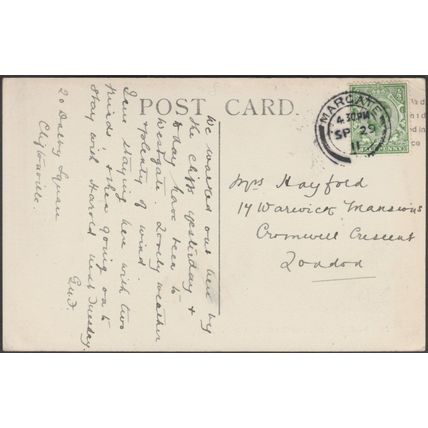 POST CARD.
We walked out here by
the cliffs yesterday &
today have been to
Westgate. Lovely weather
& plenty of wind.
I am staying here with two
friends & then going on to
stay with Harold next Tuesday.
20 Dalby Square
Cliftonville.
MARGATE
4.30PM
SP 29
11
Mrs Hayford
14 Warwick Mansions
Cromwell Crescent
London